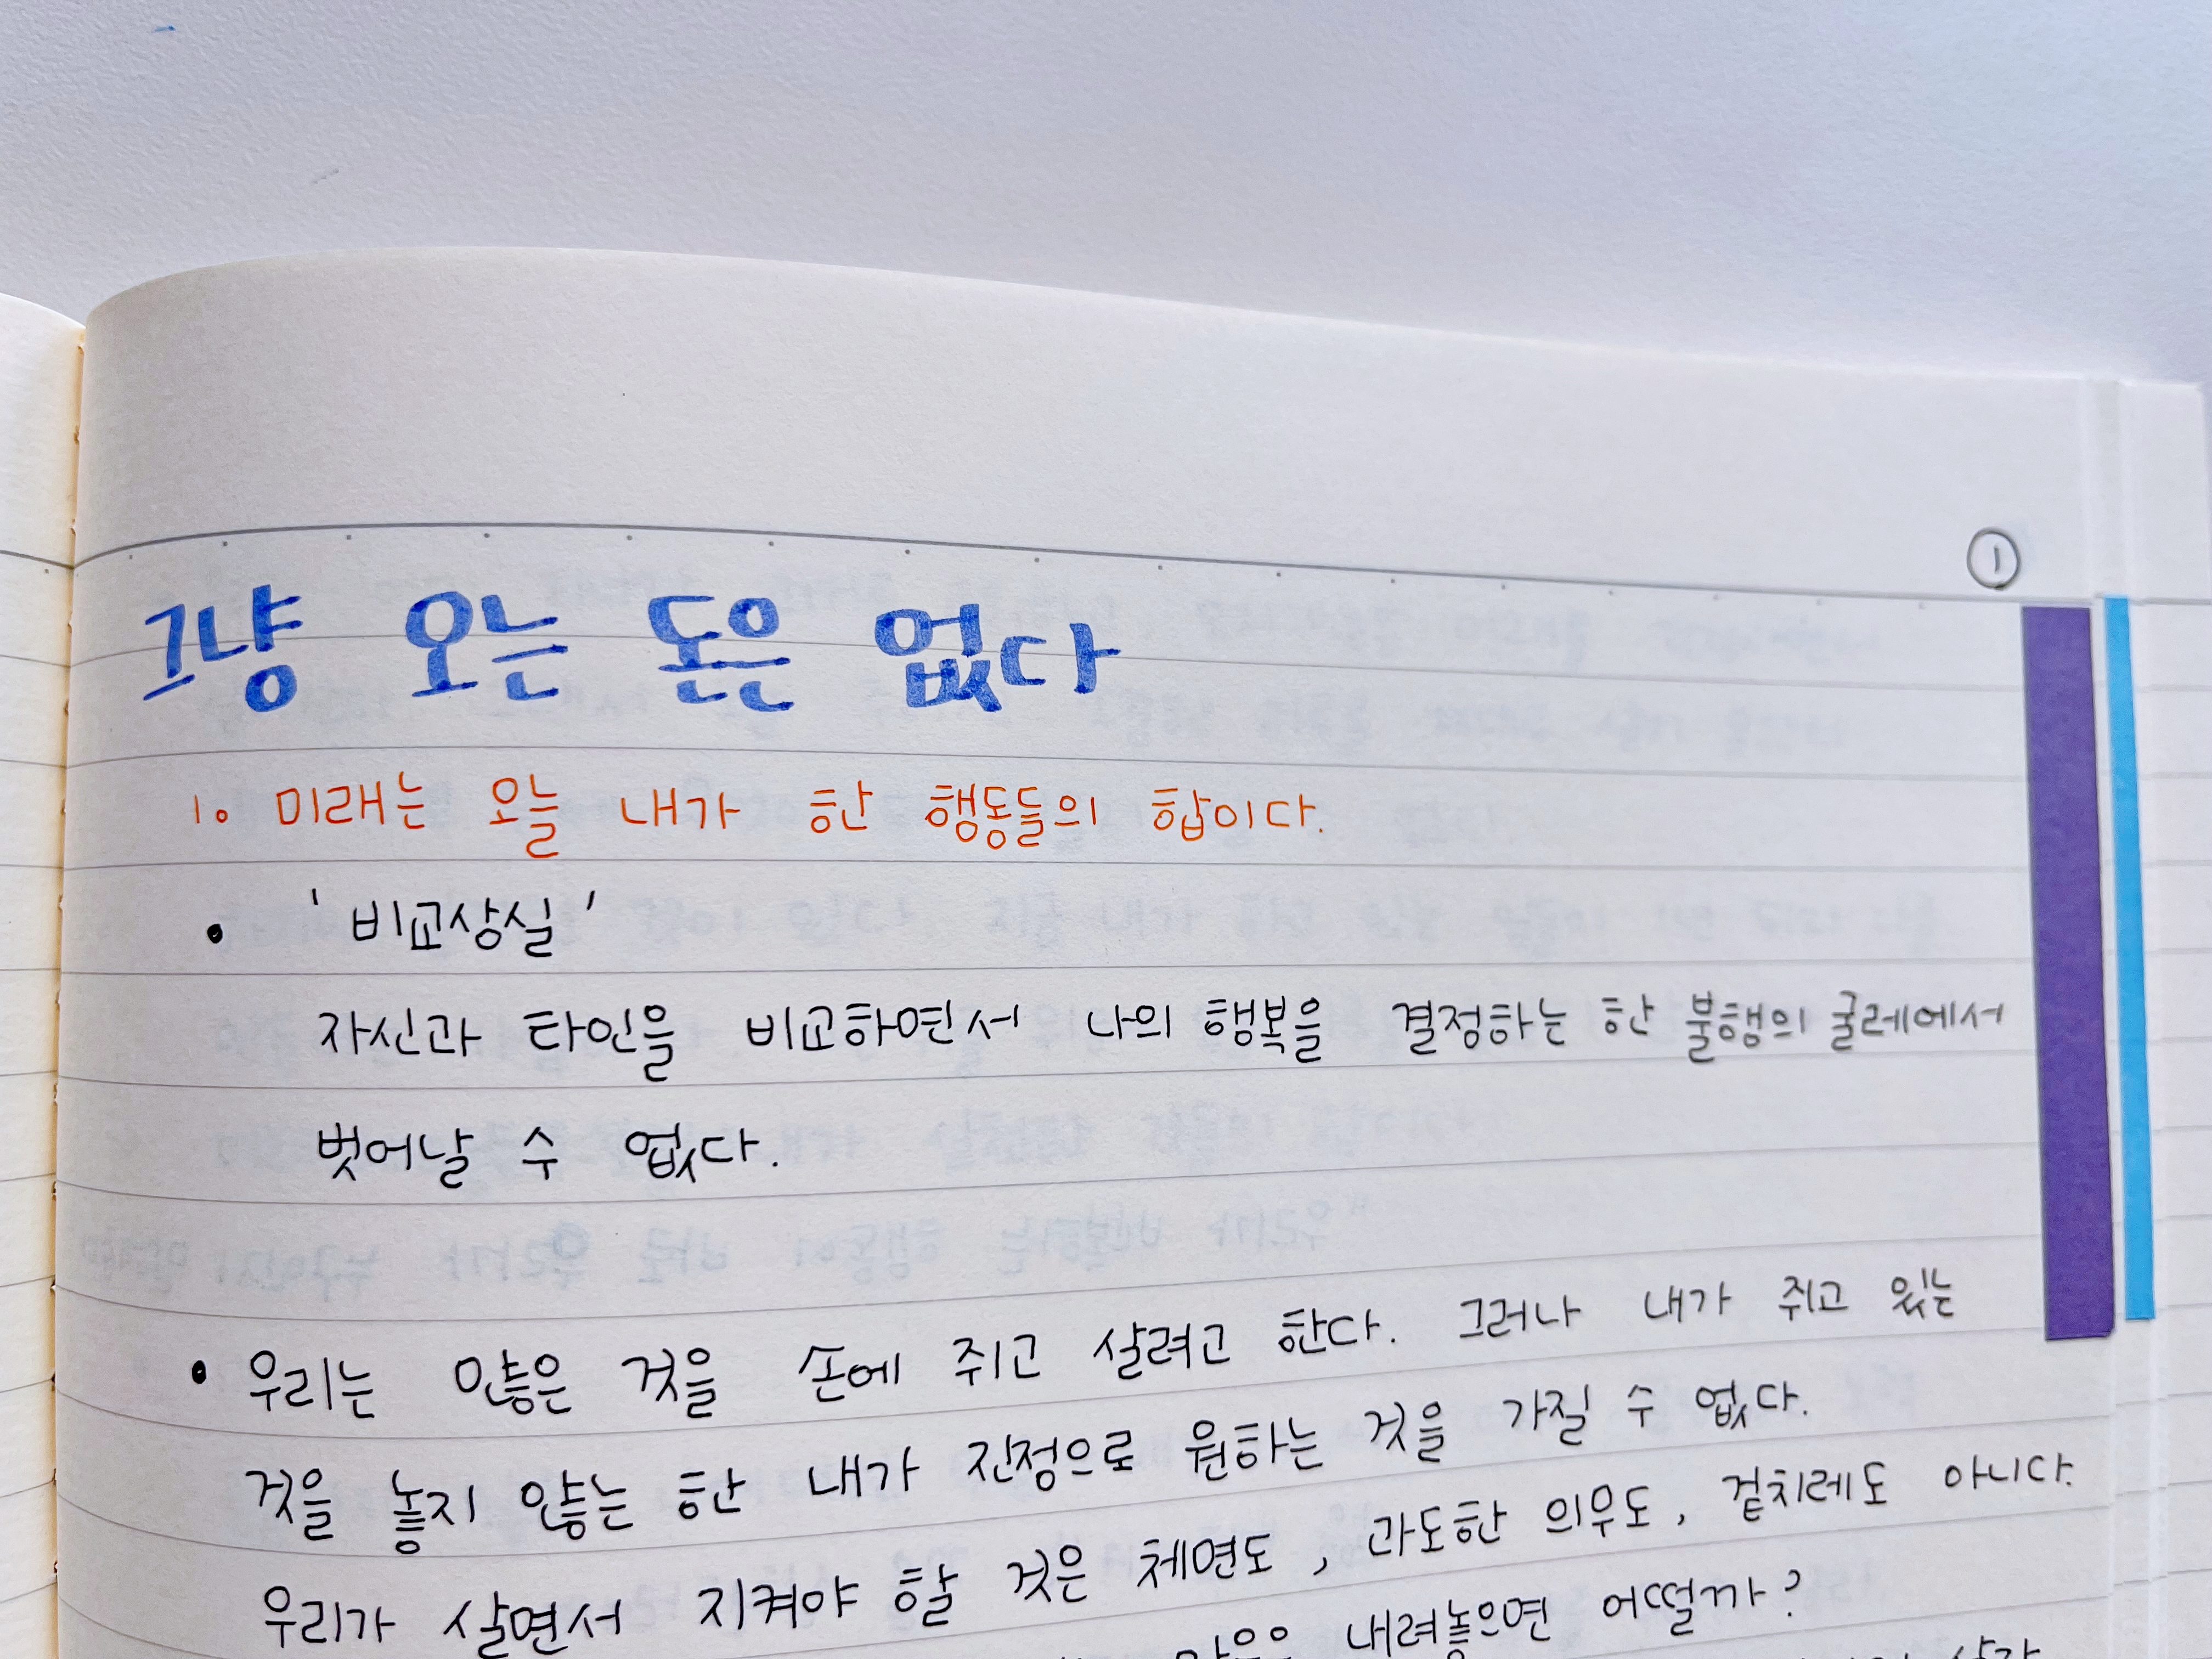 ①
그냥 오는 돈은 없다
1. 미래는 오늘 내가 한 행동들의 합이다.
• '비교상실'
자신과 타인을 비교하면서 나의 행복을 결정하는 한 불행의 굴레에서
벗어날 수 없다.
• 우리는 않은 것을 손에 쥐고 살려고 한다. 그러나 내가 쥐고 있는
것을 놓지 않는 한 내가 진정으로 원하는 것을 가질 수 없다.
우리가 살면서 지켜야 할 것은 체면도, 과도한 의무도, 겉치레도 아니다.
내려놓으면 어떨까?